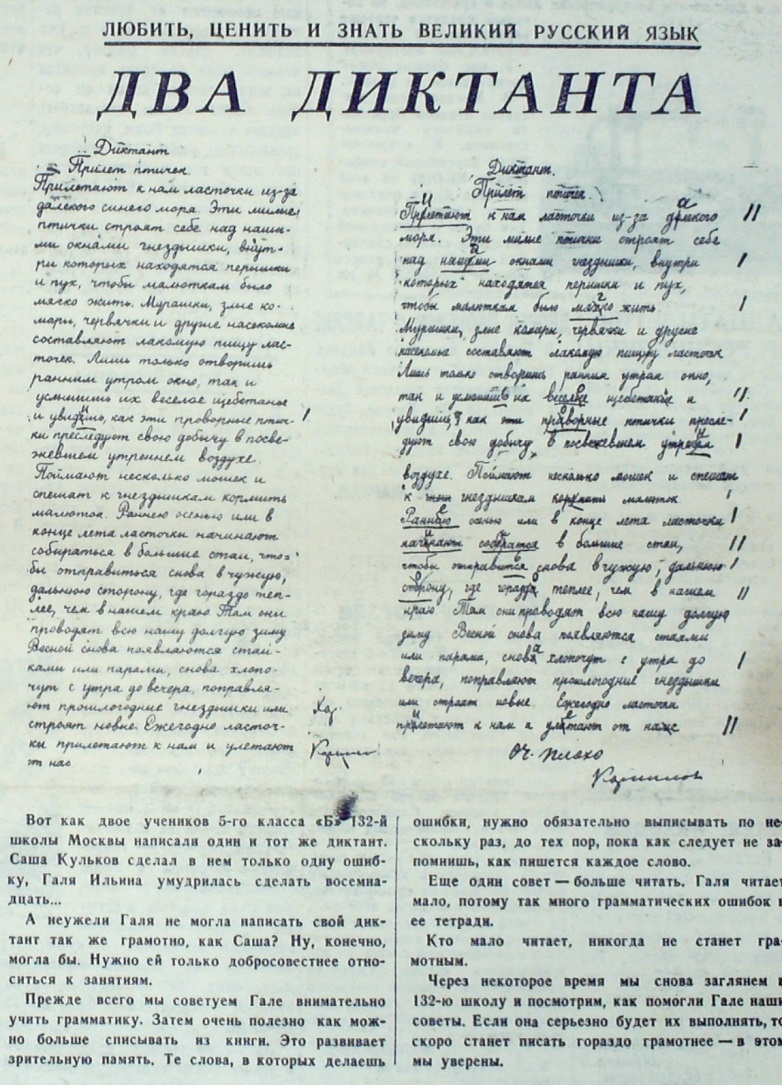 ЛЮБИТЬ, ЦЕНИТЬ И ЗНАТЬ ВЕЛИКИЙ РУССКИЙ ЯЗЫК
ДВА ДИКТАНТА
Диктант
Прилет птичек.
Прилетают к нам ласточки из-за
далекого синего моря. Эти милые
птички строят себе над наши-
ми окнами гнездышки, внут-
ри которых находятся перышки
и пух, чтобы малюткам было
мягко жить. Мурашки, злые ко-
мары, червячки и другие насекомые
составляют лакомую пищу лас-
точек. Лишь только отворишь
ранним утром окно, так и
услышишь их веселое щебетанье
и увидишь, как эти проворные птич-
ки преследуют свою добычу в посве-
жевшем утреннем воздухе.
Поймают несколько мошек и
спешат к гнездышкам кормить
малюток. Раннею осенью или в
конце лета ласточки начинают
собираться в большие стаи, что-
бы отправиться снова в чужую,
дальнюю сторону, где гораздо теп-
лее, чем в нашем краю Там они
проводят всю нашу долгую зиму
Весной снова появляются стай-
ками или парами, снова хлопо-
чут с утра до вечера, поправля-
ют прошлогодние гнездышки или
строят новые. Ежегодно ласточ-
ки прилетают к нам и улетают
от нас
Хор.
Диктант.
Прилет птичек.
Прелетают к нам ласточки из-за
моря. Эти милые птички строят себе
над окнами гнездышки, внутри
которых находятся перышки и пух,
чтобы малюткам было жить
Мурашки, злые комары, червячки и другие
насекомые составляют лакомую ласточек
Лишь только отворишь ранним утром окно,
так и их щебетание и
увидишь как эти птички пресле-
дуют свою добычу в посвежевшем
воздухе. Поймают несколько мошек и спешат
к гнездышкам малюток
осенью или в конце лета ласточки
в большие стаи,
чтобы снова в чужую, дальнюю
сторону, где теплее, чем в нашем
краю Там они проводят всю нашу долгую
зиму Весной снова появляются стаями
или парами, хлопочут с утра до
вечера, поправляют прошлогодние гнездышки
или строят новые. Ежегодно ласточки
к нам и от нас
Оч. плохо
Вот как двое учеников 5-го класса «Б» 132-й
школы Москвы написали один и тот же диктант.
Саша Кульков сделал в нем только одну ошиб-
ку, Галя Ильина умудрилась сделать восемна-
дцать...
А неужели Галя не могла написать свой дик-
тант так же грамотно, как Саша? Ну, конечно,
могла бы. Нужно ей только добросовестнее отно-
ситься к занятиям.
Прежде всего мы советуем Гале внимательно
учить грамматику. Затем очень полезно как мож-
но больше списывать из книги. Это развивает
зрительную память. Те слова, в которых делаешь
ошибки, нужно обязательно выписывать по не-
скольку раз, до тех пор, пока как следует не за-
помнишь, как пишется каждое слово.
Еще один совет — больше читать. Галя читает
мало, потому так много грамматических ошибок в
ее тетради.
Кто мало читает, никогда не станет гра-
мотным.
Через некоторое время мы снова заглянем в
132-ю школу и посмотрим, как помогли Гале наши
советы. Если она серьезно будет их выполнять, то
скоро станет писать гораздо грамотнее — в этом
мы уверены.